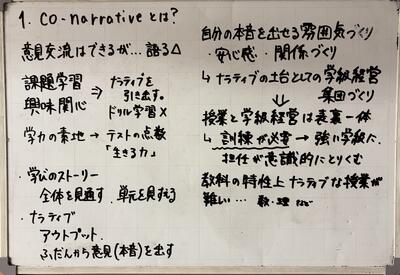 1. co-narrativeとは?
意見交流はできるが… 語る△
課題学習
興味関心
ナラティブを
引き出す。
ドリル学習×
学力の素地→テストの点数
「生きる力」
・学びのストーリー
全体を見通す 単元を見
・ナラティブ
アウトプット
ふだんから意見(本音)を出す
自分の本音を出せる雰囲気づくり
・安心感・関係づくり
↳ナラティブの土台としての学級経営
集団づくり
⇓
授業と学級経営は表裏一体
↳訓練が必要→強い学級に
担任が意識的にとりくむ
教科の特性上ナラティブな授業が
難しい… 数・理 など